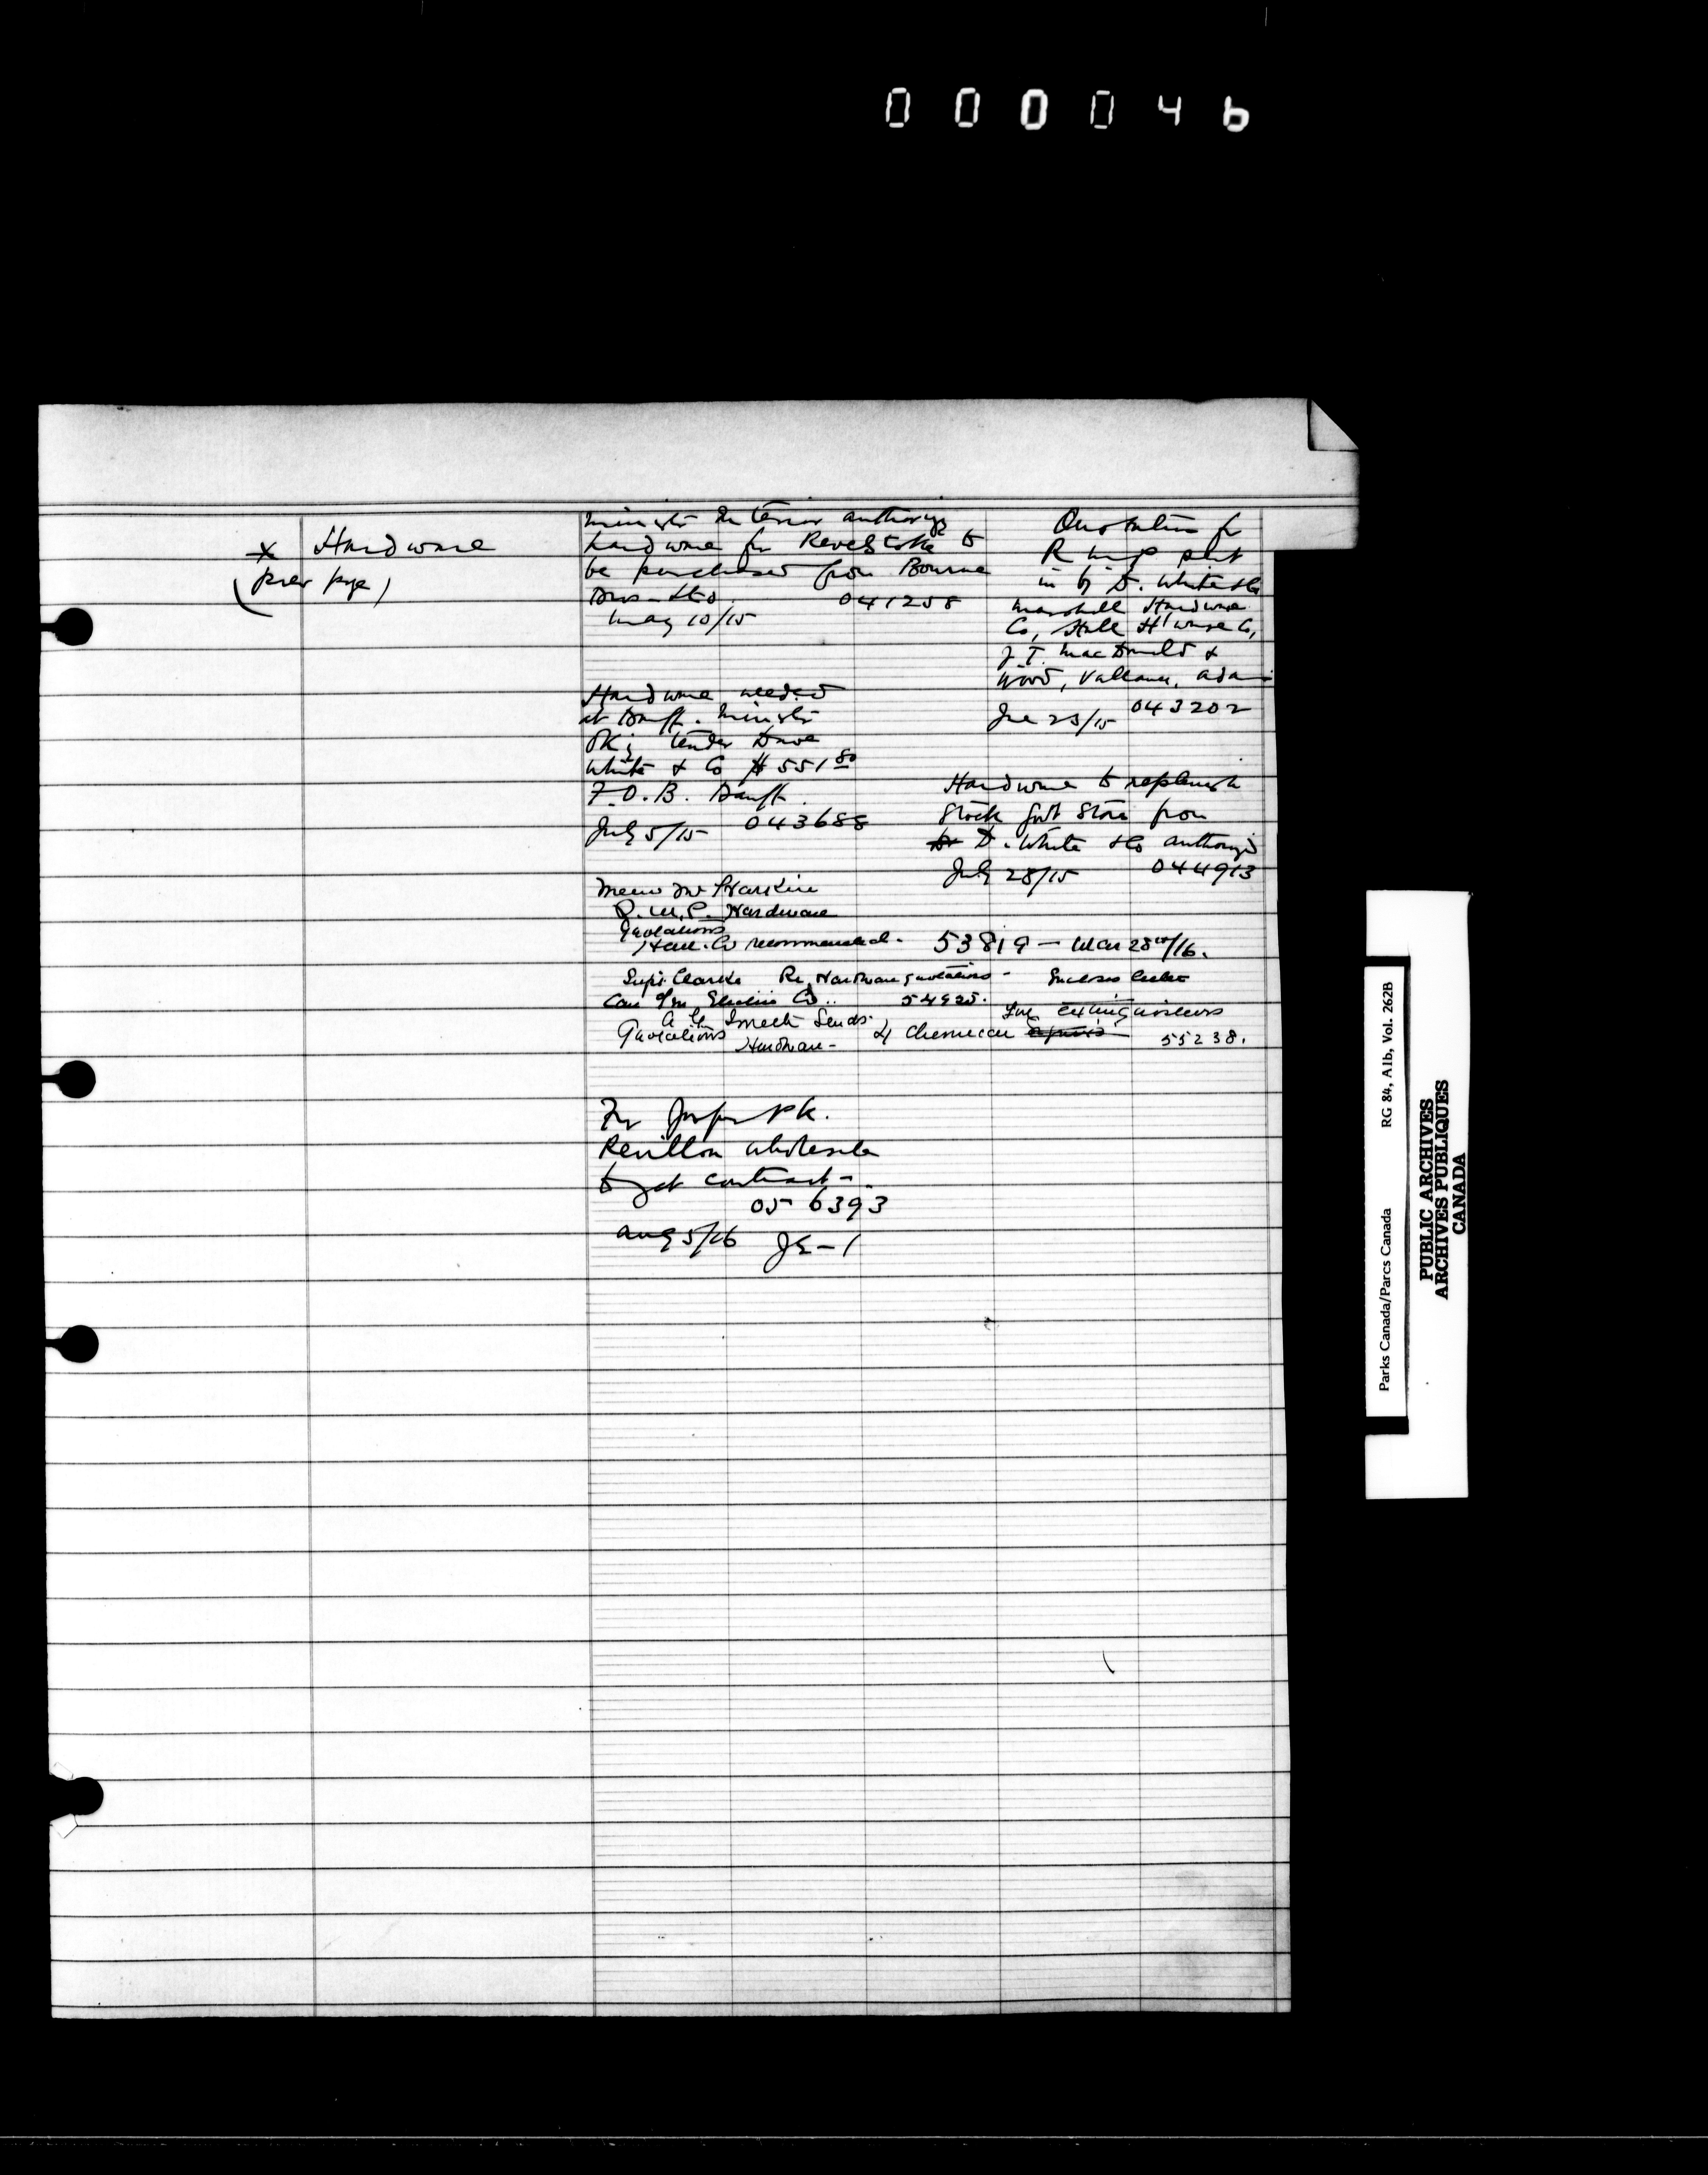 000046
x Hardware
(prev page)
Minister Interior authorizes
hardware for Revelstoke to
be purchased from Bourne
Bros Ltd. 041258
May 10/15
Quotation for
R M P sent
in by D. White & Co
Marshall Hardware
Co, Hall H'ware Co,
J.T. MacDonald &
Wood, Vallance, Adam
Jne 23/15 043202
Hardware needed
at Banff. Minister
OKs tender Dave
White & Co $551.80
F.O.B. Banff.
July 5/15 043688
Hardware to replenish
stock Govt Store from
D. White & Co authorized
July 28/15 044913
Memo Mr Harkin
R.M.P. Hardware
Quotations
Hall Co recommended. 53819 — Mar 28th/16.
Supt. Clarke Re Hardware quotations - Encloses letter
Can Gen Electric Co.. 54925.
Smith Sends.
Quotations Hardware -
4 Chemical Fire extinguishers 55238.
For Jasper Pk.
Revillon Wholesale
to get contract -
056393
Aug 5/16 J2-1
Parks Canada/Parcs Canada RG 84, A1b, Vol. 262B
PUBLIC ARCHIVES
ARCHIVES PUBLIQUES
CANADA